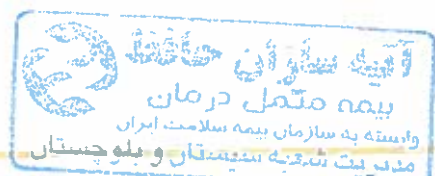 آتیه سازان حافظ
بیمه مکمل درمان
وابسته به سازمان بیمه سلامت ایران
مدیریت شعبه سیستان و بلوچستان